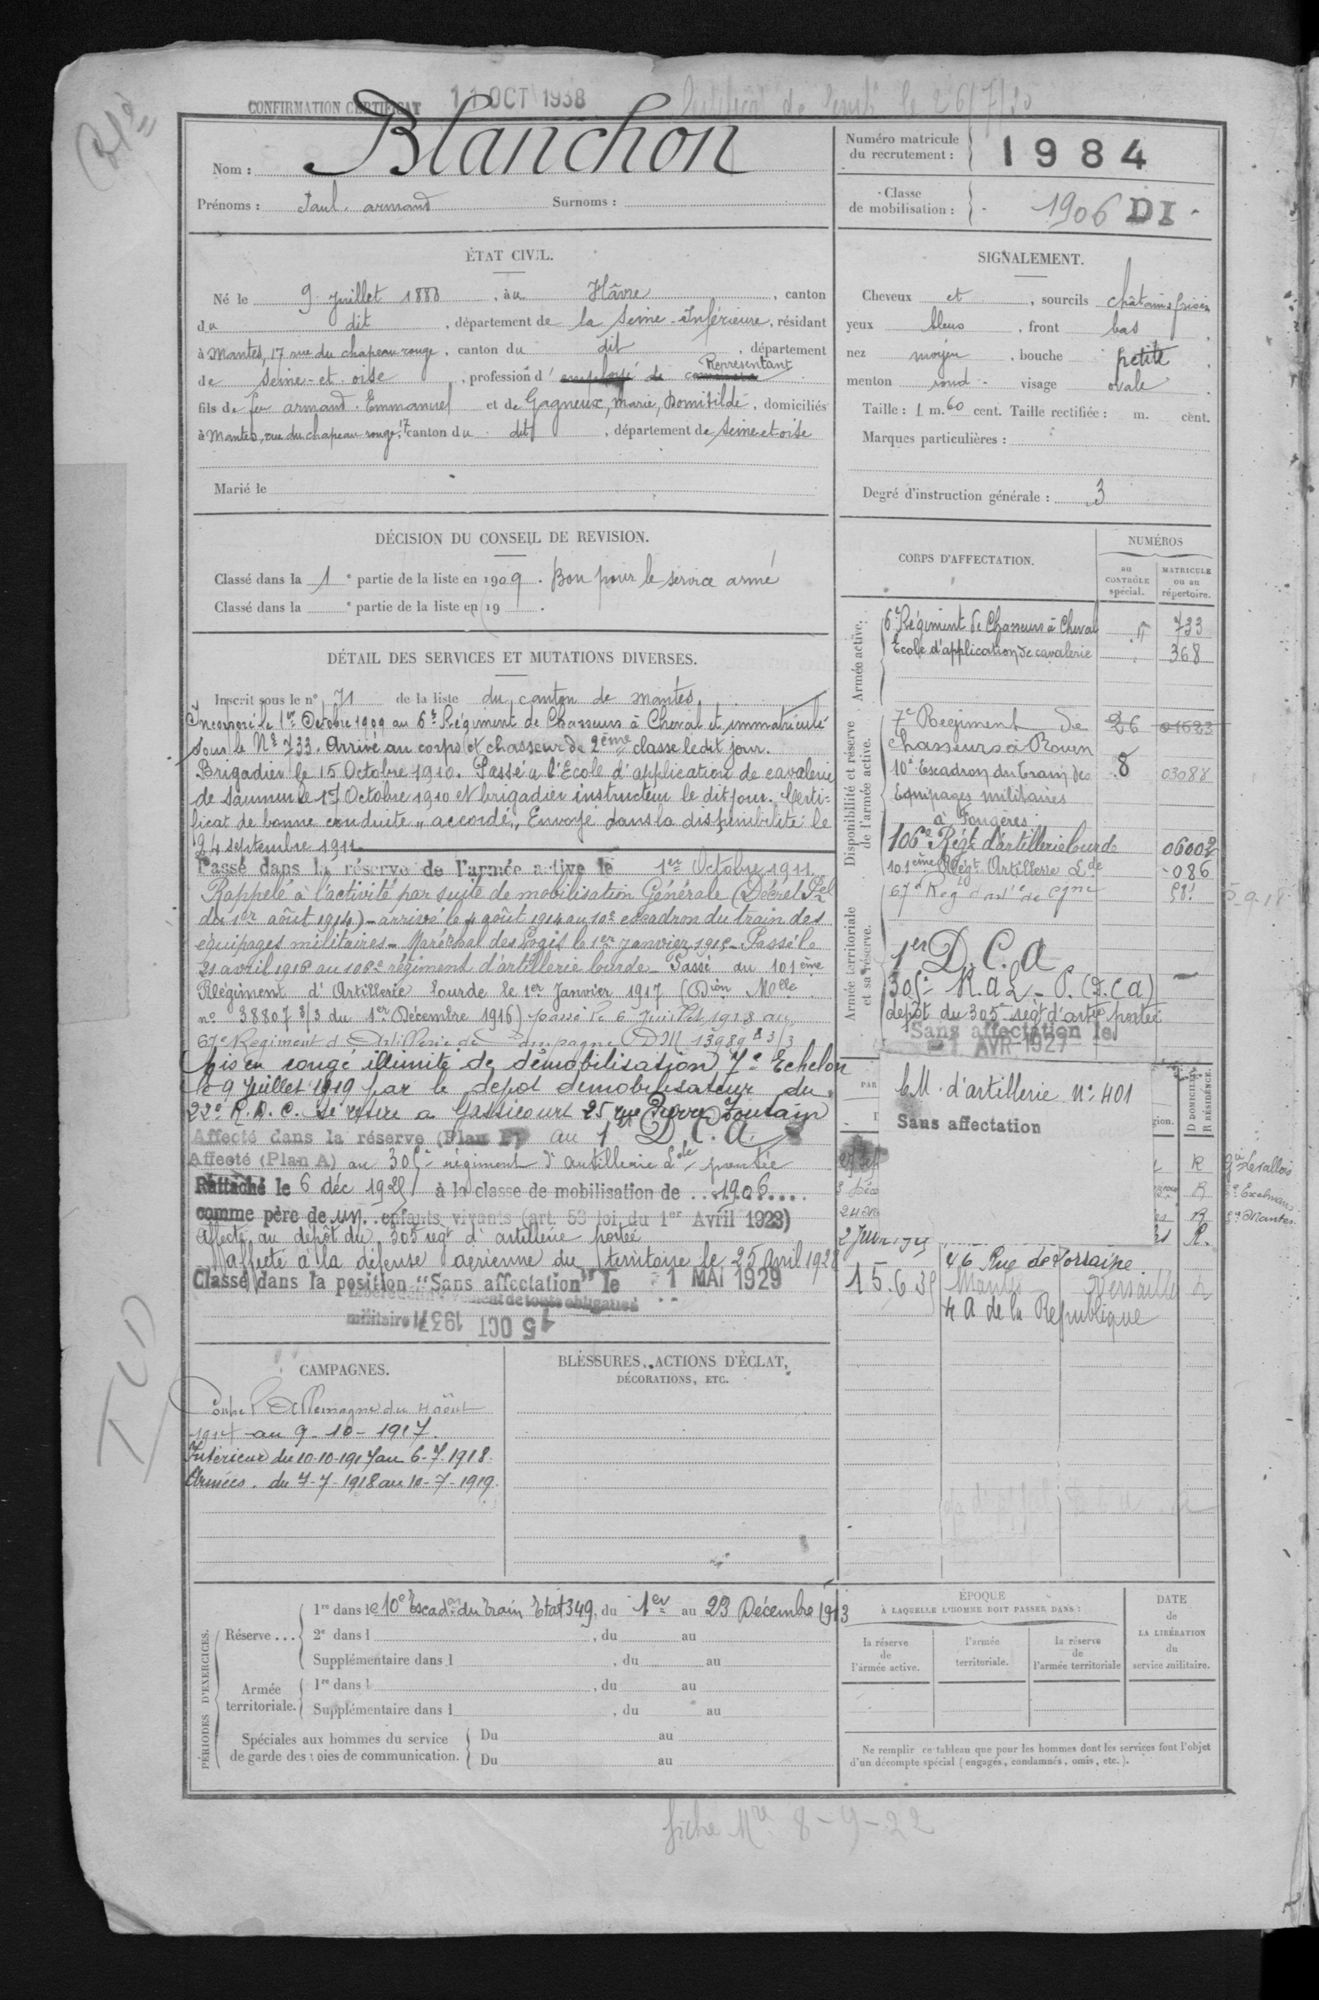 CONFIRMATION CERTIFICAT 11 OCT 1938
Nom : Blanchon
Prénoms : Paul. armand Surnoms :
Numéro matricule du recrutement : 1984
Classe de mobilisation : 1906 DI
ÉTAT CIVIL.
Né le 9 Juillet 1888, à u Hâvre, canton
du dit, département de la Seine-Inférieure, résidant
à Mantes, 17 rue du chapeau rouge, canton du dit, département
de Seine-et-oise, profession d' employé de Représentant
fils de feu armand. Emmanuel et de Gagneux, Marie, Domitilde, domiciliés
à Mantes, rue du chapeau rouge, 17 canton du dit, département de Seine et oise
Marié le
SIGNALEMENT.
Cheveux et, sourcils châtains frisés
yeux bleus, front bas
nez moyen, bouche petite
menton rond visage ovale
Taille : 1 m. 60 cent. Taille rectifiée : m. cent.
Marques particulières :
Degré d'instruction générale : 3
DÉCISION DU CONSEIL DE REVISION.
Classé dans la 1e partie de la liste en 1909. Bon pour le service armé
Classé dans la e partie de la liste en 19 .
DÉTAIL DES SERVICES ET MUTATIONS DIVERSES.
Inscrit sous le n° 71 de la liste du canton de Mantes
Incorporé le 1er Octobre 1909 au 6e Régiment de Chasseurs à Cheval et immatriculé
sous le N° 733. Arrivé au corps et chasseur de 2ème classe ledit jour.
Brigadier le 15 Octobre 1910. Passé à l'Ecole d'application de cavalerie
de Saumur le 17 Octobre 1910 et brigadier instructeur le dit jour. Certi-
ficat de bonne conduite "accordé". Envoyé dans la disponibilité le
24 septembre 1911
Passé dans la réserve de l'armée active le 1er Octobre 1911
Rappelé à l'activité par suite de mobilisation Générale (Décret Pel
du 1er août 1914) - arrivé le 4 août 1914 au 10e escadron du train des
équipages militaires - Maréchal des Logis le 1er janvier 1915 - Passé le
21 avril 1916 au 106e régiment d'artillerie lourde - Passé au 101ème
Régiment d'Artillerie lourde le 1er Janvier 1917 (Dion Melle
n° 38807 3/3 du 1er Décembre 1916) passé le 6 Juillet 1918 au
67e Régiment d'Artillerie de Campagne DM 13989 3/3
Mis en congé illimité de démobilisation 7e Echelon
le 9 Juillet 1919 par le dépôt démobilisateur du
22e R.A.C. Se retire a Gassicourt 25 rue Pierre Doutain
Affecté dans la réserve (Plan ) au 1er D.C.A.
Affecté (Plan A) au 305e régiment d'artillerie Lde portée
Rattaché le 6 déc 1925 à la classe de mobilisation de 1906
comme père de un enfants vivants (art. 58 loi du 1er Avril 1923)
Affecté au dépôt du 305 régt d'artillerie portée
Affecté à la défense aérienne du territoire le 25 avril 1928
Classé dans la position "Sans affectation" le 1 MAI 1929
de toute obligation
militaire 15 OCT 1937
CORPS D'AFFECTATION.
NUMÉROS
au CONTRÔLE spécial.
MATRICULE ou au répertoire.
Armée active.
6e Régiment de Chasseurs à Cheval 733
Ecole d'application de cavalerie 368
Disponibilité et réserve de l'armée active.
7e Régiment de 26 01623
Chasseurs à Rouen
10e Escadron du Train des 8 03088
Equipages militaires
à Fougères
106e Régt d'artillerie lourde 06002
101ème Régt Artillerie Lde 086
67e Reg d'art'ie de Cgne
Armée territoriale et sa réserve.
1er D.C.A
305e R.a.L.P. (D.C.a)
dépôt du 305e régt d'artie portée
Sans affectation le
1 AVR 1927
C.M. d'artillerie N° 401
Sans affectation
D DOMICILE R RÉSIDENCE.
R Levallois
R
R Mantes
R.
2 Juin
46 Rue de Lorraine
15.6.35 Mantes Versailles
4 A de la République
CAMPAGNES.
Contre l'Allemagne du 4 août
1914 au 9-10-1917.
Intérieur du 10-10-1917 au 6-7-1918.
Armées. du 7-7-1918 au 10-7-1919.
BLESSURES, ACTIONS D'ÉCLAT,
DÉCORATIONS, ETC.
PÉRIODES D'EXERCICES.
Réserve ... 1re dans le 10e Escadon du Train Etat 349, du 1er au 23 Décembre 1913
2e dans l , du au
Supplémentaire dans l , du au
Armée territoriale. 1re dans l , du au
Supplémentaire dans l , du au
Spéciales aux hommes du service de garde des voies de communication. Du au
Du au
ÉPOQUE
À LAQUELLE L'HOMME DOIT PASSER DANS :
la réserve de l'armée active.
l'armée territoriale.
la réserve de l'armée territoriale
DATE de LA LIBÉRATION du service militaire.
Ne remplir ce tableau que pour les hommes dont les services font l'objet
d'un décompte spécial (engagés, condamnés, omis, etc.).
fiche Mle 8-9-22